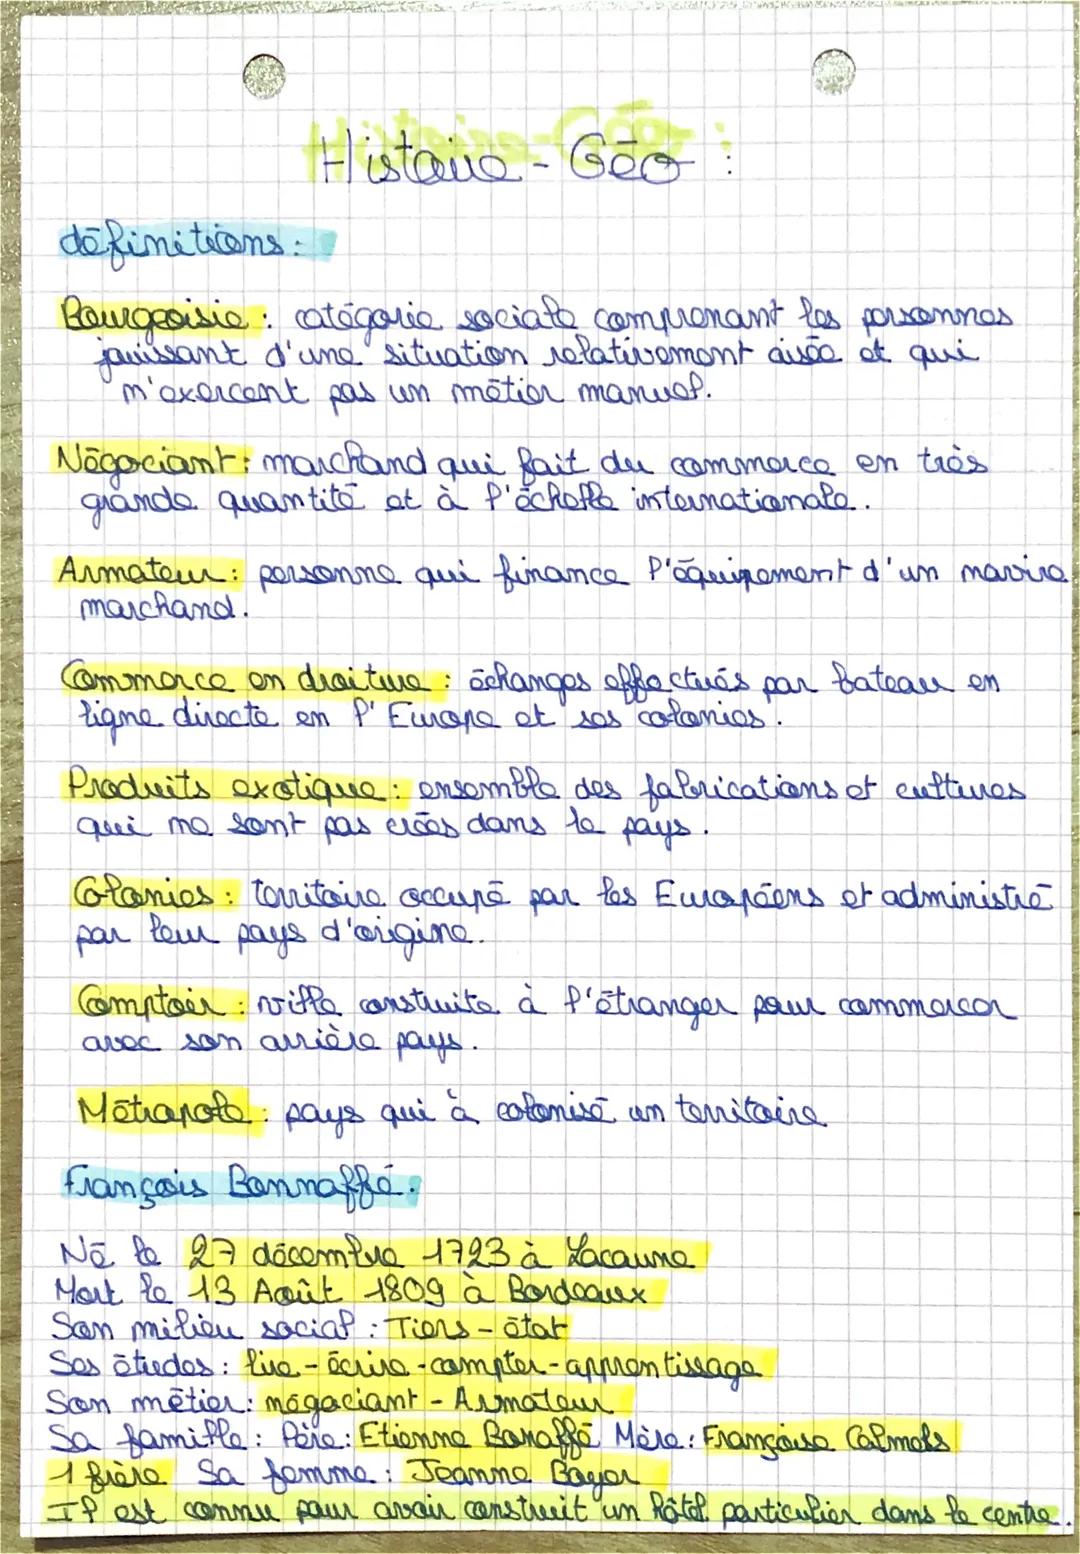 Histoire - Géo :
définitions :
Bourgeoisie : catégorie sociale comprenant les personnes
jouissant d'une situation relativement aisée et qui
n'exercent pas un métier manuel.
Négociant : marchand qui fait du commerce en très
grande quantité et à l'échelle internationale.
Armateur : personne qui finance l'équipement d'un navire
marchand.
Commerce en droiture : échanges effectués par bateau en
ligne directe en l'Europe et ses colonies.
Produits exotique : ensemble des fabrications et cultures
qui ne sont pas créés dans le pays.
Colonies : territoire occupé par les Européens et administré
par leur pays d'origine.
Comptoir : ville construite à l'étranger pour commercer
avec son arrière pays.
Métropole : pays qui à colonisé un territoire
François Bonnaffé :
Né le 27 décembre 1723 à Lacaune
Mort le 13 Août 1809 à Bordeaux
Son milieu social : Tiers - état
Ses études : lire - écrire - compter - apprentissage
Son métier : négociant - Armateur
Sa famille : Père : Etienne Bonaffé Mère : Françoise Calmels
1 frère Sa femme : Jeanne Boyer
Il est connu pour avoir construit un hôtel particulier dans le centre.